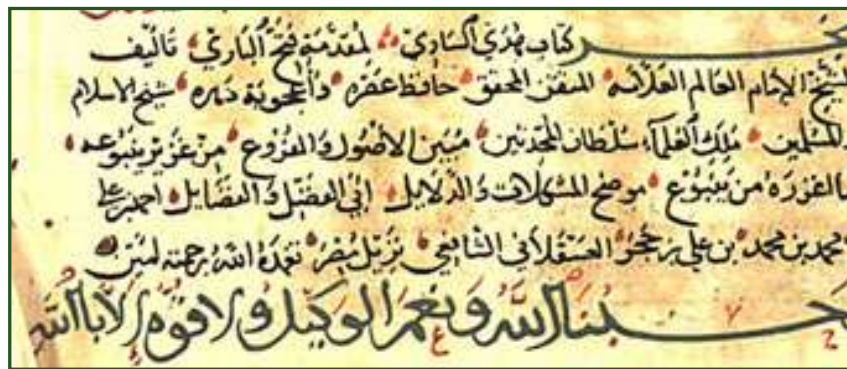 كتاب هدي الساري لمقدمة فتح الباري تأليف
الشيخ الإمام العالم العلامه المتقن المحقق حافظ عصره وأعجوبة دهره شيخ الاسلام
والمسلمين ملك العلماء سلطان المحدثين مبين الأصول والفروع من عزيز ينبوعه
من ينبوع موضح المشكلات والدلايل ابي الفضل والفضايل احمد بن علي
محمد بن محمد بن علي بن حجر العسقلاني الشافعي نزيل مصر تغمده الله برحمته
حسبنا الله ونعم الوكيل ولا قوة إلا بالله